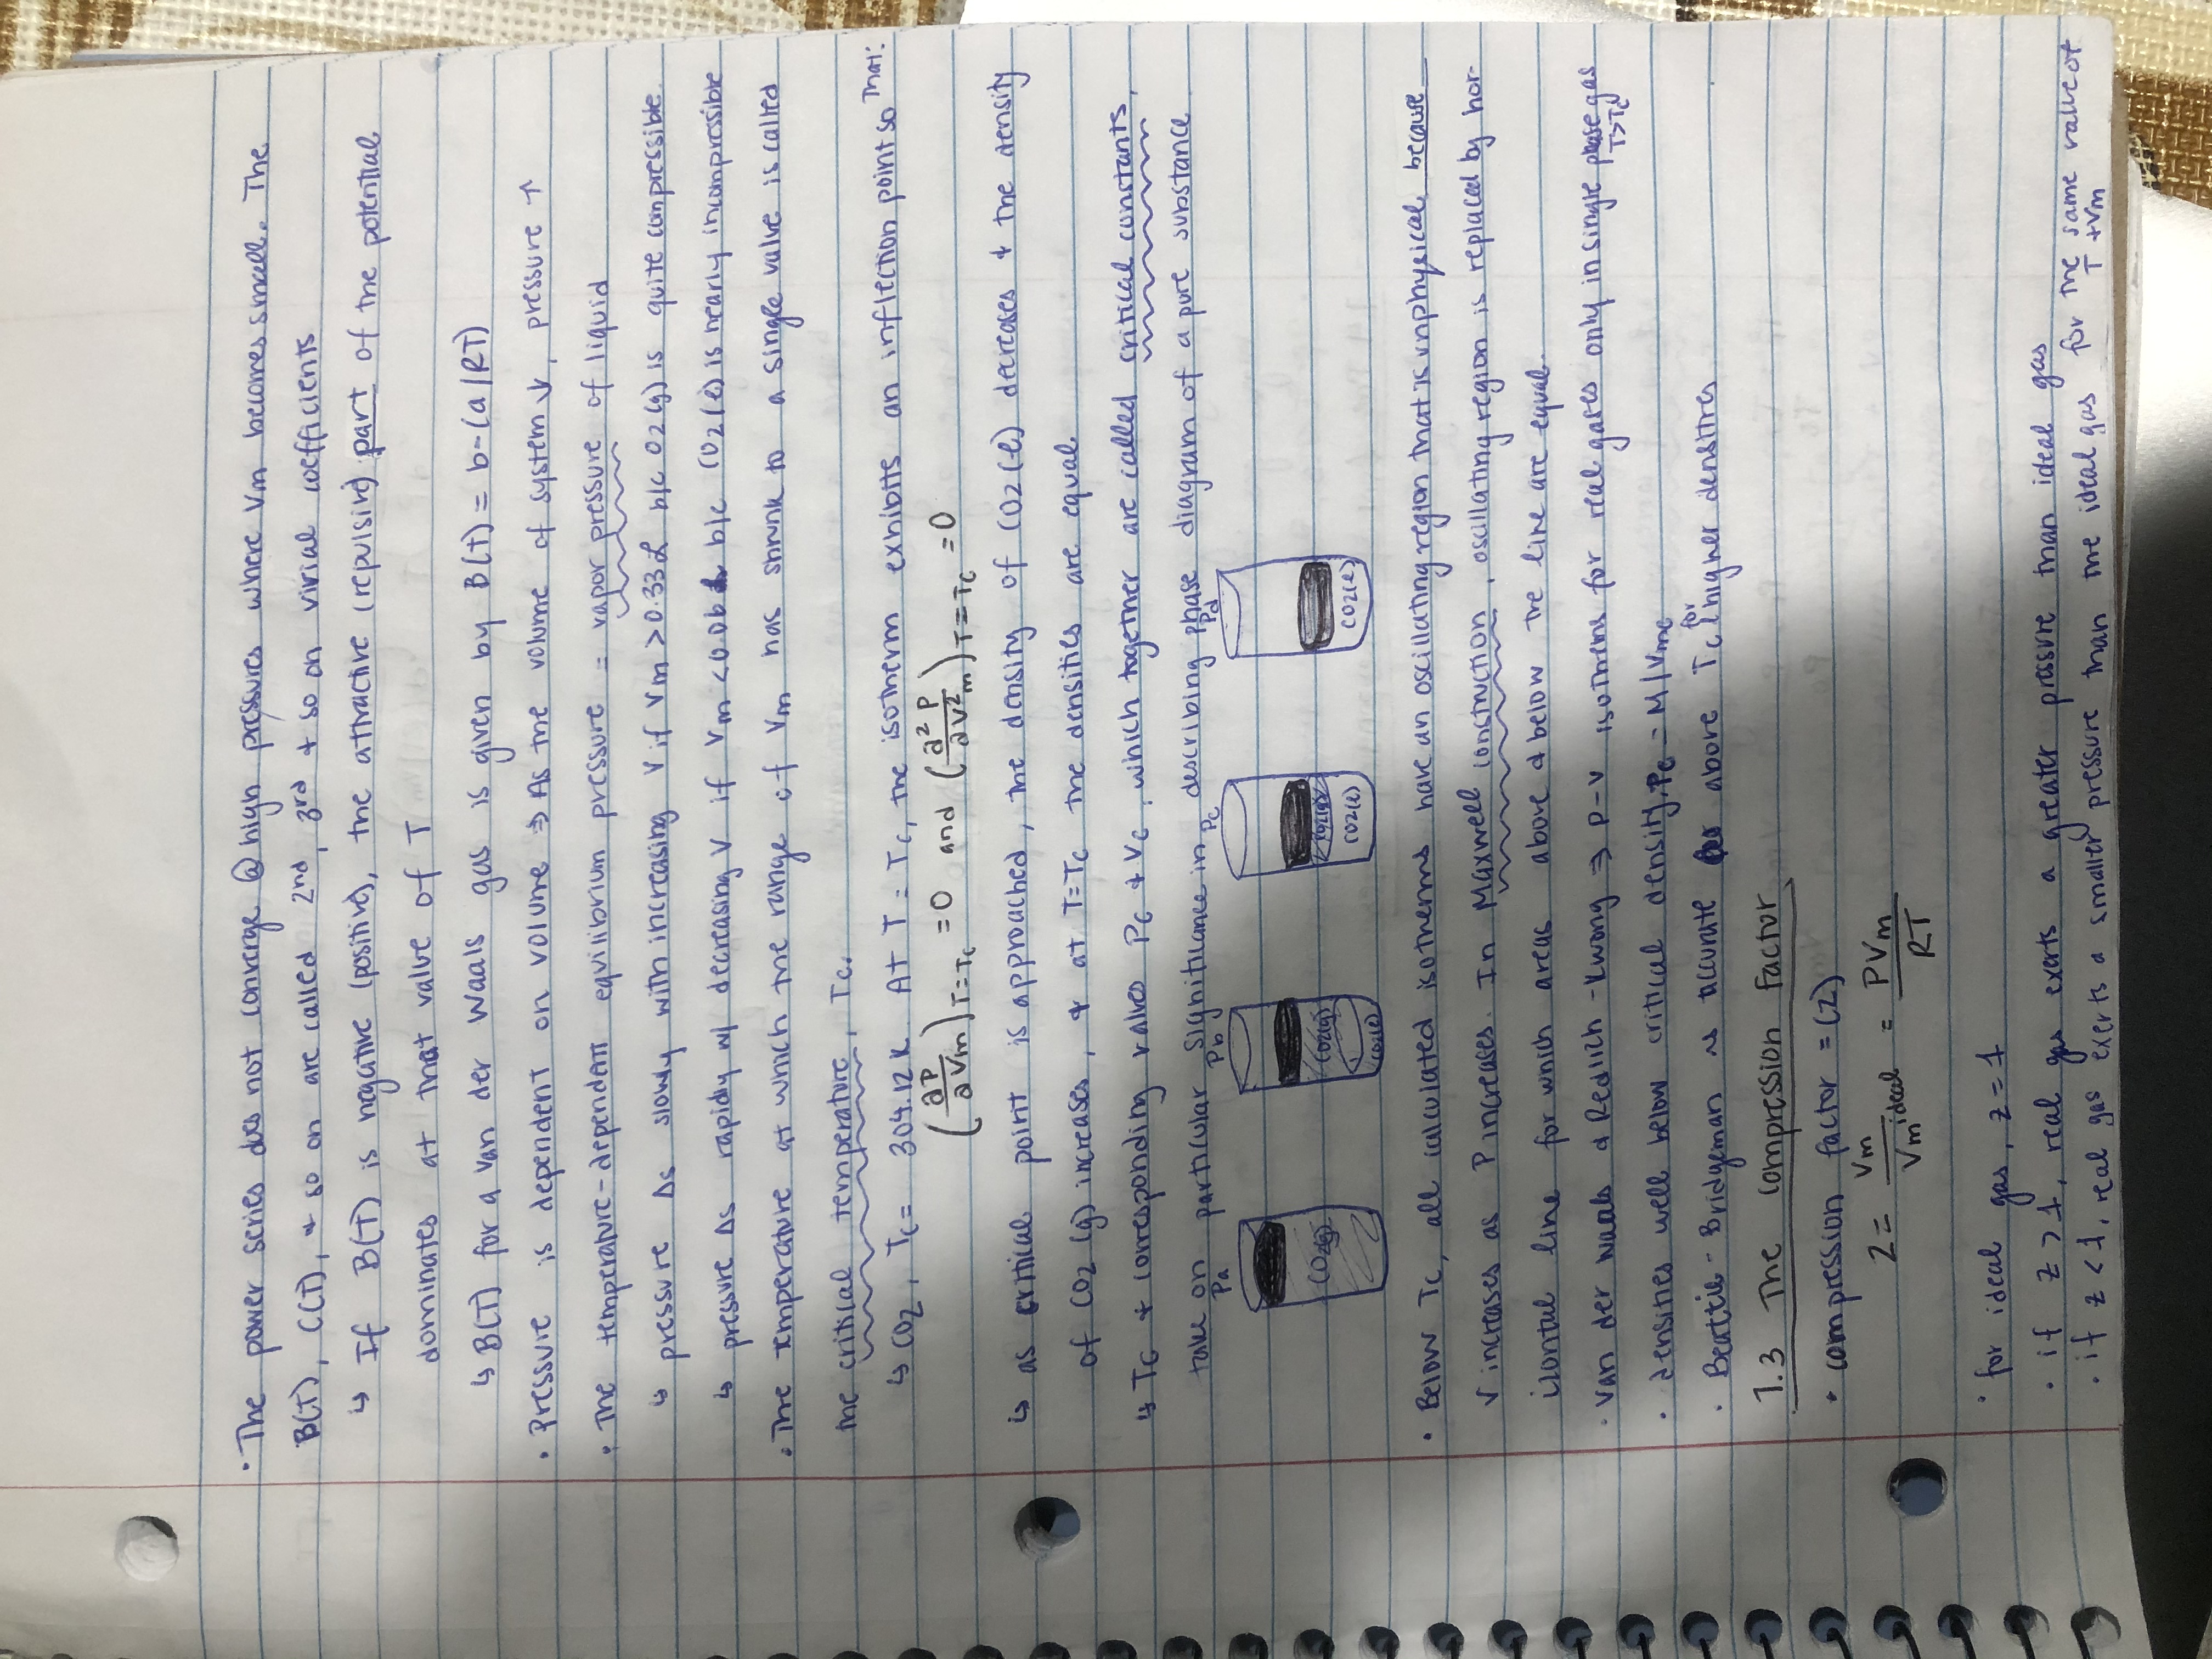 • The power series does not converge @ high pressures where Vm becomes small. The
B(T), C(T), & so on are called 2nd, 3rd & so on virial coefficients
↳ If B(T) is negative (positive), the attractive (repulsive) part of the potential
dominates at that value of T
↳ B(T) for a van der Waals gas is given by B(t) = b-(a/RT)
• Pressure is dependent on volume ⇒ As the volume of system ↓, pressure ↑
• The temperature-dependent equilibrium pressure = vapor pressure of liquid
↳ pressure Δs slowly with increasing V if Vm >0.33L b/c O2(g) is quite compressible.
↳ pressure Δs rapidly w/ decreasing V if Vm <0.06L b/c CO2(l) is nearly incompressible
• The temperature at which the range of Vm has shrunk to a single value is called
the critical temperature, Tc.
↳ CO2, Tc = 304.12K. At T = Tc, the isotherm exhibits an inflection point so that:
(∂P/∂Vm)T=Tc = 0 and (∂²P/∂V²m)T=Tc = 0
↳ as critical point is approached, the density of CO2(l) decreases & the density
of CO2 (g) increases, & at T=Tc the densities are equal.
↳ Tc & corresponding values Pc & Vc, which together are called critical constants,
take on particular significance in describing phase diagram of a pure substance
Pa Pb Pc Pd
CO2(g) CO2(g) CO2(g)
CO2(l) CO2(l) CO2(l)
• Below Tc, all calculated isotherms have an oscillating region that is unphysical because
V increases as P increases. In Maxwell construction, oscillating region is replaced by hor-
izontal line for which areas above & below the line are equal.
• Van der Waals & Redlich-Kwong ⇒ P-V isotherms for real gases only in single phase gas
T>Tc
• densities well below critical density, ρc = M/Vmc
• Beattie-Bridgeman is accurate above Tc for higher densities
7.3 The Compression Factor
• compression factor = (z)
z = Vm/Vm ideal = PVm/RT
• for ideal gas, z = 1
• if z > 1, real gas exerts a greater pressure than ideal gas
• if z < 1, real gas exerts a smaller pressure than the ideal gas for the same value of
T + Vm